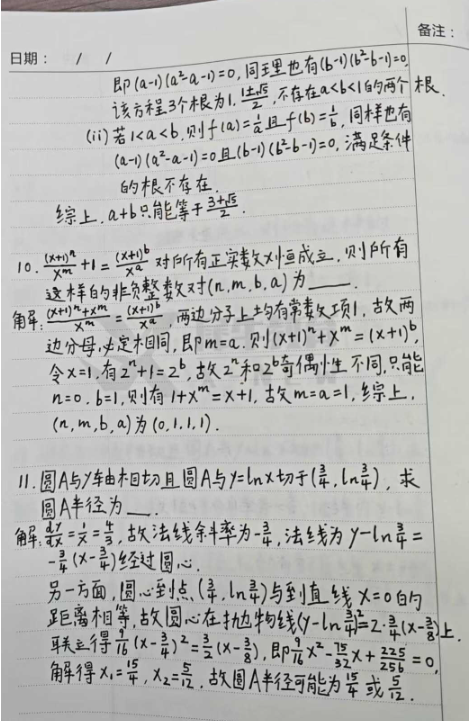 备注：
日期： / /
即(a-1)(a²-a-1)=0, 同理也有(b-1)(b²-b-1)=0,
该方程3个根为1, (1±√5)/2, 不存在a<b<1的两个根.
(ii) 若1<a<b, 则f(a)=1/a且f(b)=1/b, 同样也有
(a-1)(a²-a-1)=0且(b-1)(b²-b-1)=0, 满足条件
的根不存在.
综上, a+b只能等于(3+√5)/2.
10. (x+1)ⁿ/xᵐ+1=(x+1)ᵇ/xᵃ 对所有正实数x恒成立, 则所有
这样的非负整数对(n,m,b,a)为____.
解: ((x+1)ⁿ+xᵐ)/xᵐ=(x+1)ᵇ/xᵃ, 两边分子上均有常数项1, 故两
边分母必定相同, 即m=a. 则(x+1)ⁿ+xᵐ=(x+1)ᵇ,
令x=1, 有2ⁿ+1=2ᵇ, 故2ⁿ和2ᵇ奇偶性不同, 只能
n=0, b=1, 则有1+xᵐ=x+1, 故m=a=1, 综上,
(n,m,b,a)为(0,1,1,1).
11. 圆A与y轴相切且圆A与y=lnx切于(3/4, ln3/4), 求
圆A半径为____.
解: dy/dx=1/x=4/3, 故法线斜率为-3/4, 法线为y-ln3/4=
-3/4(x-3/4)经过圆心.
另一方面, 圆心到点(3/4, ln3/4)与到直线x=0的
距离相等, 故圆心在抛物线(y-ln3/4)²=2·3/4(x-3/8)上.
联立得9/16(x-3/4)²=3/2(x-3/8), 即9/16x²-75/32x+225/256=0,
解得x₁=15/4, x₂=5/12. 故圆A半径可能为15/4或5/12.